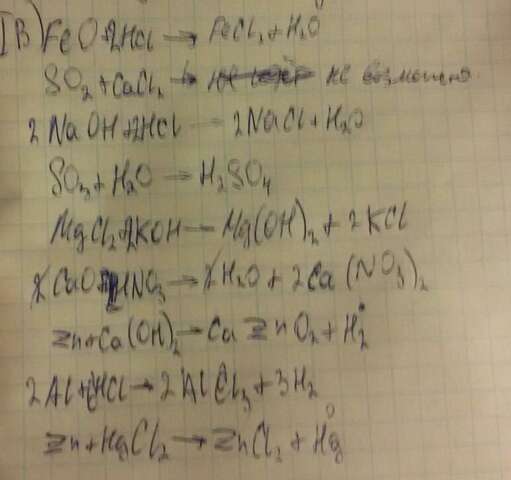 IB) FeO+2HCl → FeCl2+H2O
SO2+CaCl2 → не возможно
2NaOH+2HCl — 2NaCl+H2O
SO3+H2O → H2SO4
MgCl2+2KOH — Mg(OH)2+2KCl
CaO+2HNO3 → H2O+2Ca(NO3)2
Zn+Ca(OH)2 → CaZnO2+H2
2Al+6HCl → 2AlCl3+3H2
Zn+HgCl2 → ZnCl2+Hg